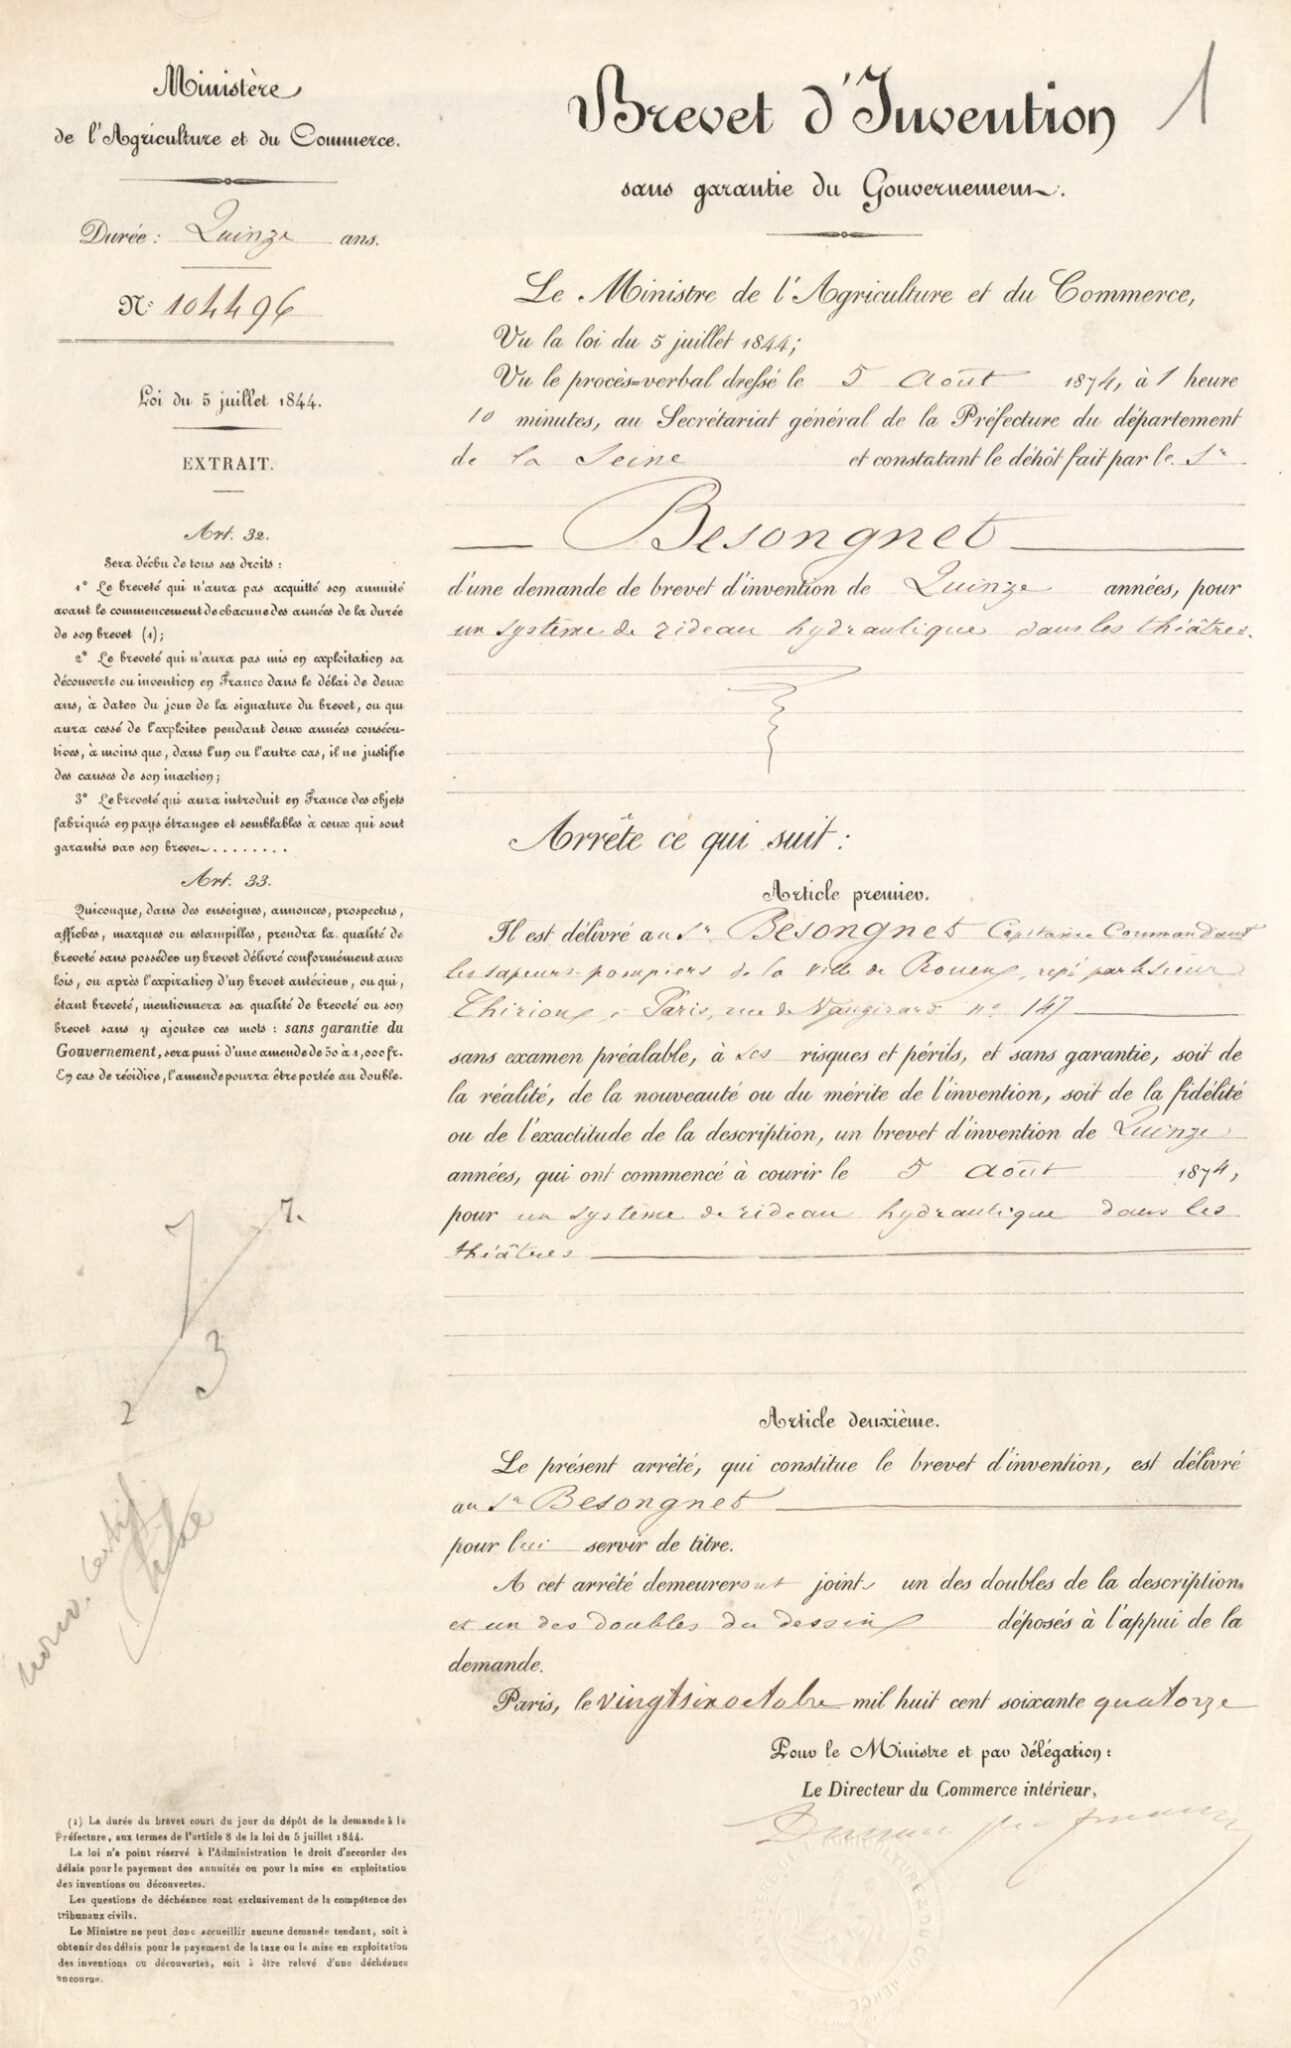 Ministère
de l'Agriculture et du Commerce.
Durée : Quinze ans.
N° 104496
Loi du 5 juillet 1844.
EXTRAIT.
Art. 32.
Sera déchu de tous ses droits :
1° Le breveté qui n'aura pas acquitté son annuité
avant le commencement de chacune des années de la durée
de son brevet (1);
2° Le breveté qui n'aura pas mis en exploitation sa
découverte ou invention en France dans le délai de deux
ans, à dater du jour de la signature du brevet, ou qui
aura cessé de l'exploiter pendant deux années consécu-
tives, à moins que, dans l'un ou l'autre cas, il ne justifie
des causes de son inaction;
3° Le breveté qui aura introduit en France des objets
fabriqués en pays étranger et semblables à ceux qui sont
garantis par son brevet........
Art. 33.
Quiconque, dans des enseignes, annonces, prospectus,
affiches, marques ou estampilles, prendra la qualité de
breveté sans posséder un brevet délivré conformément aux
lois, ou après l'expiration d'un brevet antérieur, ou qui,
étant breveté, mentionnera sa qualité de breveté ou son
brevet sans y ajouter ces mots : sans garantie du
Gouvernement, sera puni d'une amende de 50 à 1,000 fr.
En cas de récidive, l'amende pourra être portée au double.
7.
3
2
(1) La durée du brevet court du jour du dépôt de la demande à la
Préfecture, aux termes de l'article 8 de la loi du 5 juillet 1844.
La loi n'a point réservé à l'Administration le droit d'accorder des
délais pour le payement des annuités ou pour la mise en exploitation
des inventions ou découvertes.
Les questions de déchéance sont exclusivement de la compétence des
tribunaux civils.
Le Ministre ne peut donc accueillir aucune demande tendant, soit à
obtenir des délais pour le payement de la taxe ou la mise en exploitation
des inventions ou découvertes, soit à être relevé d'une déchéance
encourue.
1
Brevet d'Invention
sans garantie du Gouvernement.
Le Ministre de l'Agriculture et du Commerce,
Vu la loi du 5 juillet 1844;
Vu le procès-verbal dressé le 5 Août 1874, à 1 heure
10 minutes, au Secrétariat général de la Préfecture du département
de la Seine et constatant le dépôt fait par le Sr
Besongnet
d'une demande de brevet d'invention de Quinze années, pour
un système de rideau hydraulique dans les théâtres.
Arrête ce qui suit :
Article premier.
Il est délivré au Sr Besongnet Capitaine Commandant
les sapeurs-pompiers de la ville de Rouen, repé par le sieur
Thirion, à Paris, rue de Vaugirard no 147
sans examen préalable, à ses risques et périls, et sans garantie, soit de
la réalité, de la nouveauté ou du mérite de l'invention, soit de la fidélité
ou de l'exactitude de la description, un brevet d'invention de Quinze
années, qui ont commencé à courir le 5 Août 1874,
pour un système de rideau hydraulique dans les
théâtres
Article deuxième.
Le présent arrêté, qui constitue le brevet d'invention, est délivré
au Sr Besongnet
pour lui servir de titre.
A cet arrêté demeureront joints un des doubles de la description
et un des doubles du dessin déposés à l'appui de la
demande.
Paris, le vingt six octobre mil huit cent soixante quatorze
Pour le Ministre et par délégation :
Le Directeur du Commerce intérieur,